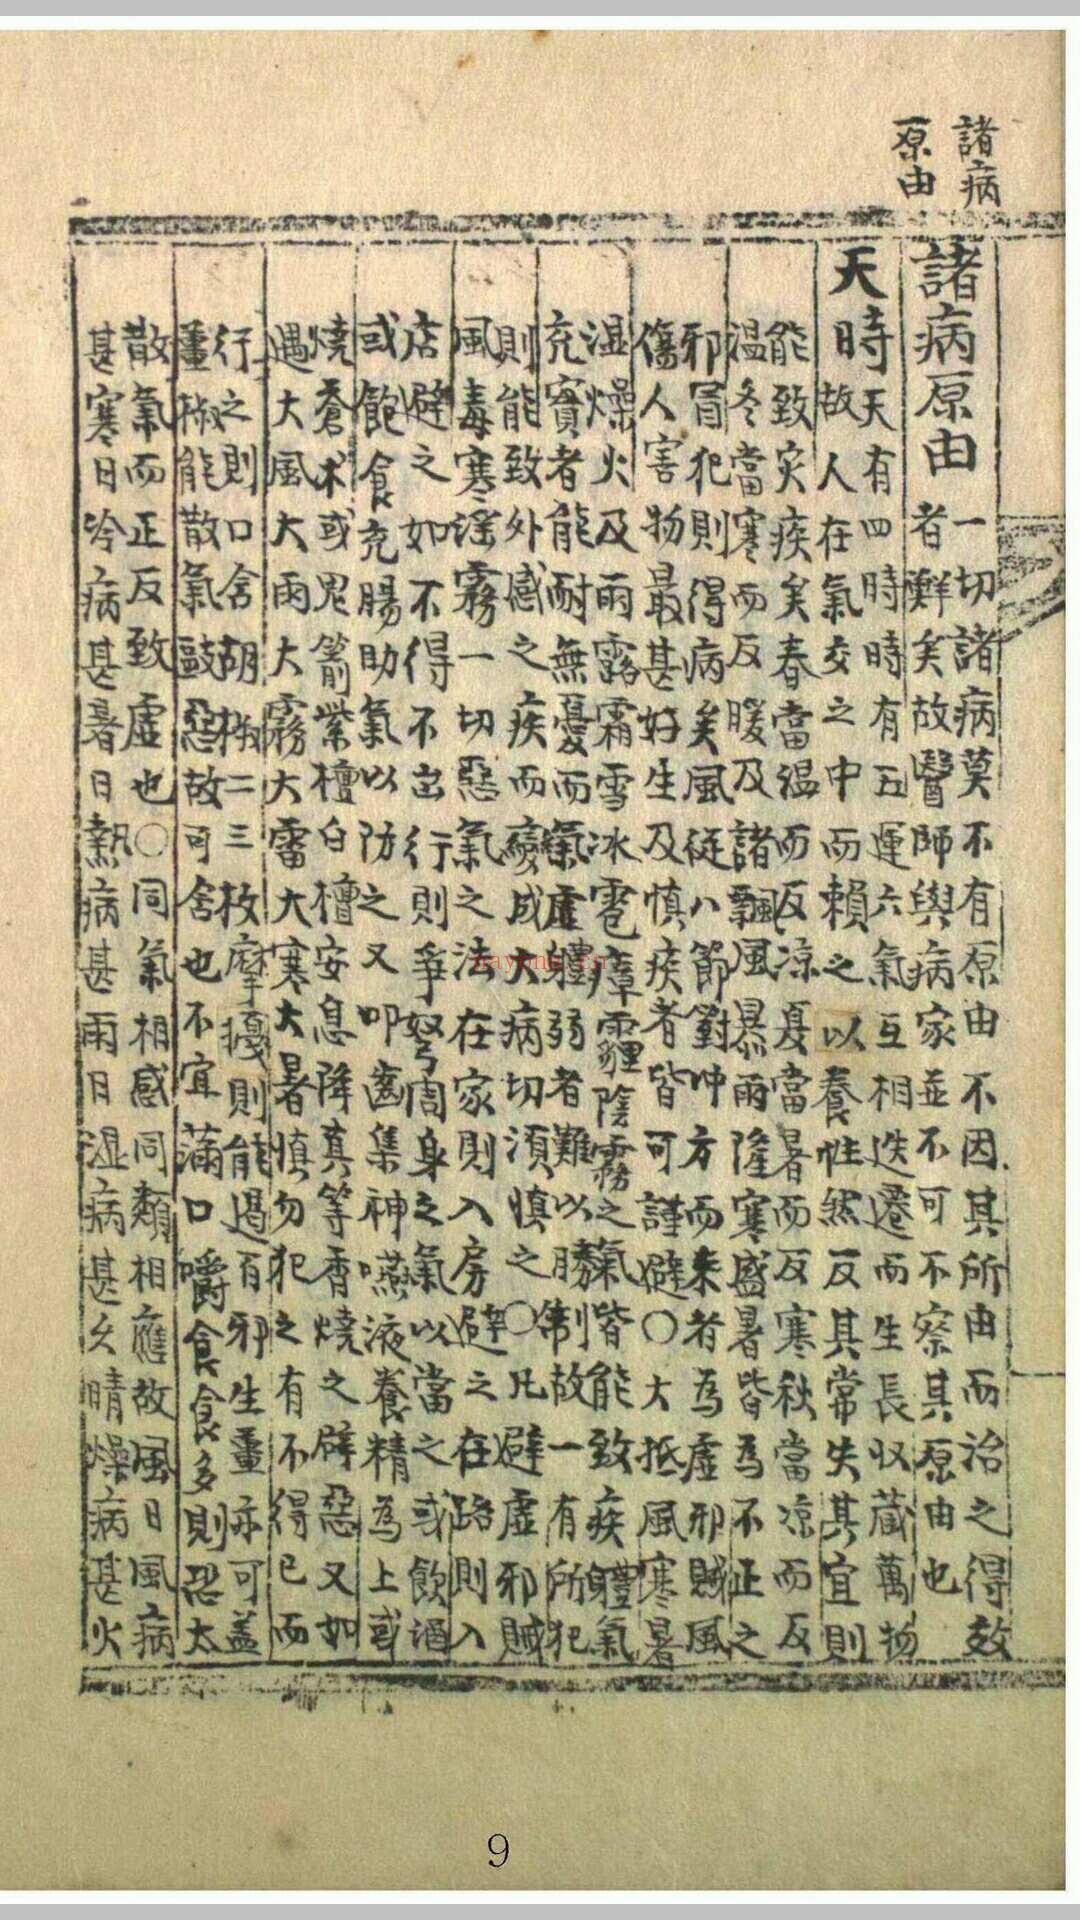 諸病
原由
諸病原由
一切諸病莫不有原由不因其所由而治之得效
者鮮矣故醫師與病家並不可不察其原由也
天時
天有四時時有五運六氣互相迭遷而生長収蔵萬物
故人在氣交之中而賴之以養性然反其常失其宜則
能致灾疾矣春當温而反凉夏當暑而反寒秋當凉而反
温冬當寒而反暖及諸飄風暴雨隆寒盛暑皆為不正之
邪冒犯則得病矣風從八節對冲方而来者為虛邪賊風
傷人害物最甚好生及慎疾者皆可謹避〇大抵風寒暑
湿燥火及雨露霜雪冰雹瘴霾陰霧之氣皆能致疾體氣
充實者能耐無憂而氣虛體弱者難以勝制故一有所犯
則能致外感之疾而變成大病切須慎之〇凡避虛邪賊
風毒寒滛霧一切惡氣之法在家則入房避之在路則入
店避之如不得不出行則爭努周身之氣以當之或飲酒
或飽食充腸助氣以防之又叩齒集神嚥液養精為上或
燒蒼术或鬼箭紫檀白檀安息降真等香燒之辟惡又如
遇大風大雨大霧大雷大寒大暑慎勿犯之有不得已而
行之則口含胡椒二三枚摩擾則能遏百邪生薑亦可盖
薑椒能散氣敺惡故可含也不宜滿口嚼食食多則恐太
散氣而正反致虛也〇同氣相感同類相應故風日風病
甚寒日冷病甚暑日熱病甚雨日湿病甚久晴燥病甚火
9